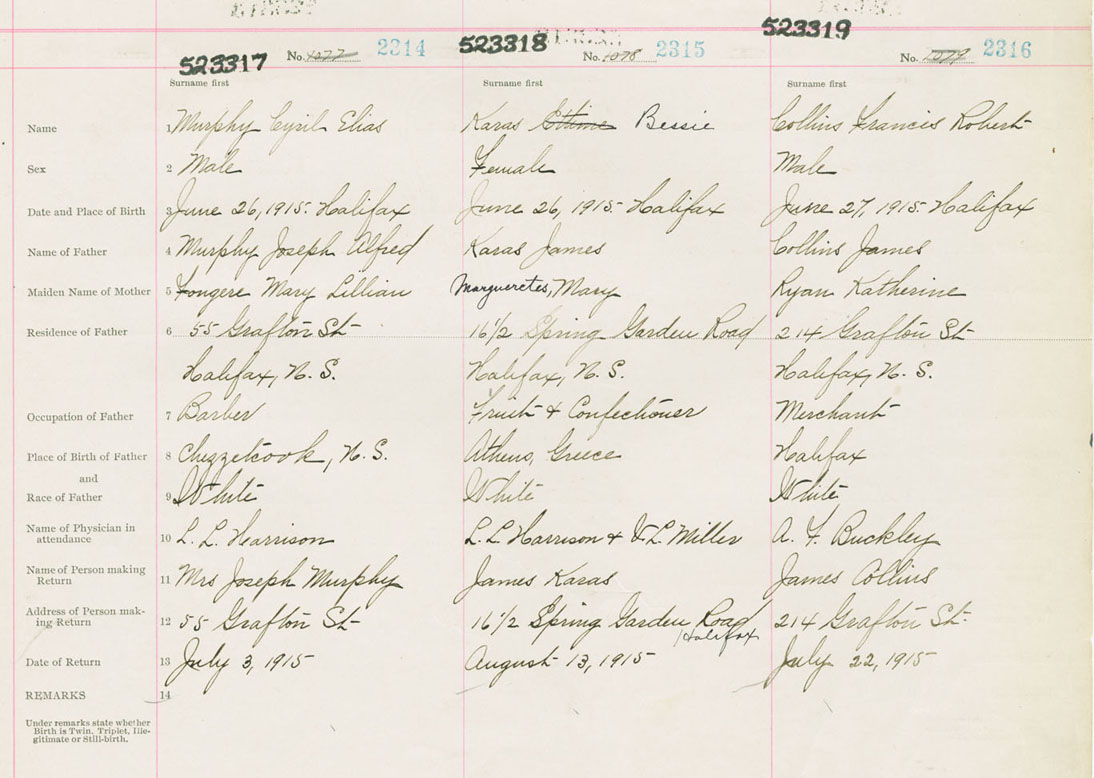 523317 No. 1077 2314 523318 No. 1078 2315 523319 No. 1079 2316
Surname first Surname first Surname first
Name 1 Murphy Cyril Elias Karas Bessie Collins Francis Robert
Sex 2 Male Female Male
Date and Place of Birth 3 June 26, 1915. Halifax June 26, 1915. Halifax June 27, 1915. Halifax
Name of Father 4 Murphy Joseph Alfred Karas James Collins James
Maiden Name of Mother 5 Fougere Mary Lillian Margueretes, Mary Ryan Katherine
Residence of Father 6 55 Grafton St 16 1/2 Spring Garden Road 214 Grafton St
Halifax, N. S. Halifax, N. S. Halifax, N. S.
Occupation of Father 7 Barber Fruit & Confectioner Merchant
Place of Birth of Father 8 Chezzetcook, N. S. Athens, Greece Halifax
and
Race of Father 9 White White White
Name of Physician in attendance 10 L. L. Harrison L. L. Harrison & V. L. Miller A. F. Buckley
Name of Person making Return 11 Mrs Joseph Murphy James Karas James Collins
Address of Person making Return 12 55 Grafton St 16 1/2 Spring Garden Road 214 Grafton St.
Halifax
Date of Return 13 July 3, 1915 August 13, 1915 July 22, 1915
REMARKS 14
Under remarks state whether
Birth is Twin, Triplet, Ille-
gitimate or Still-birth.